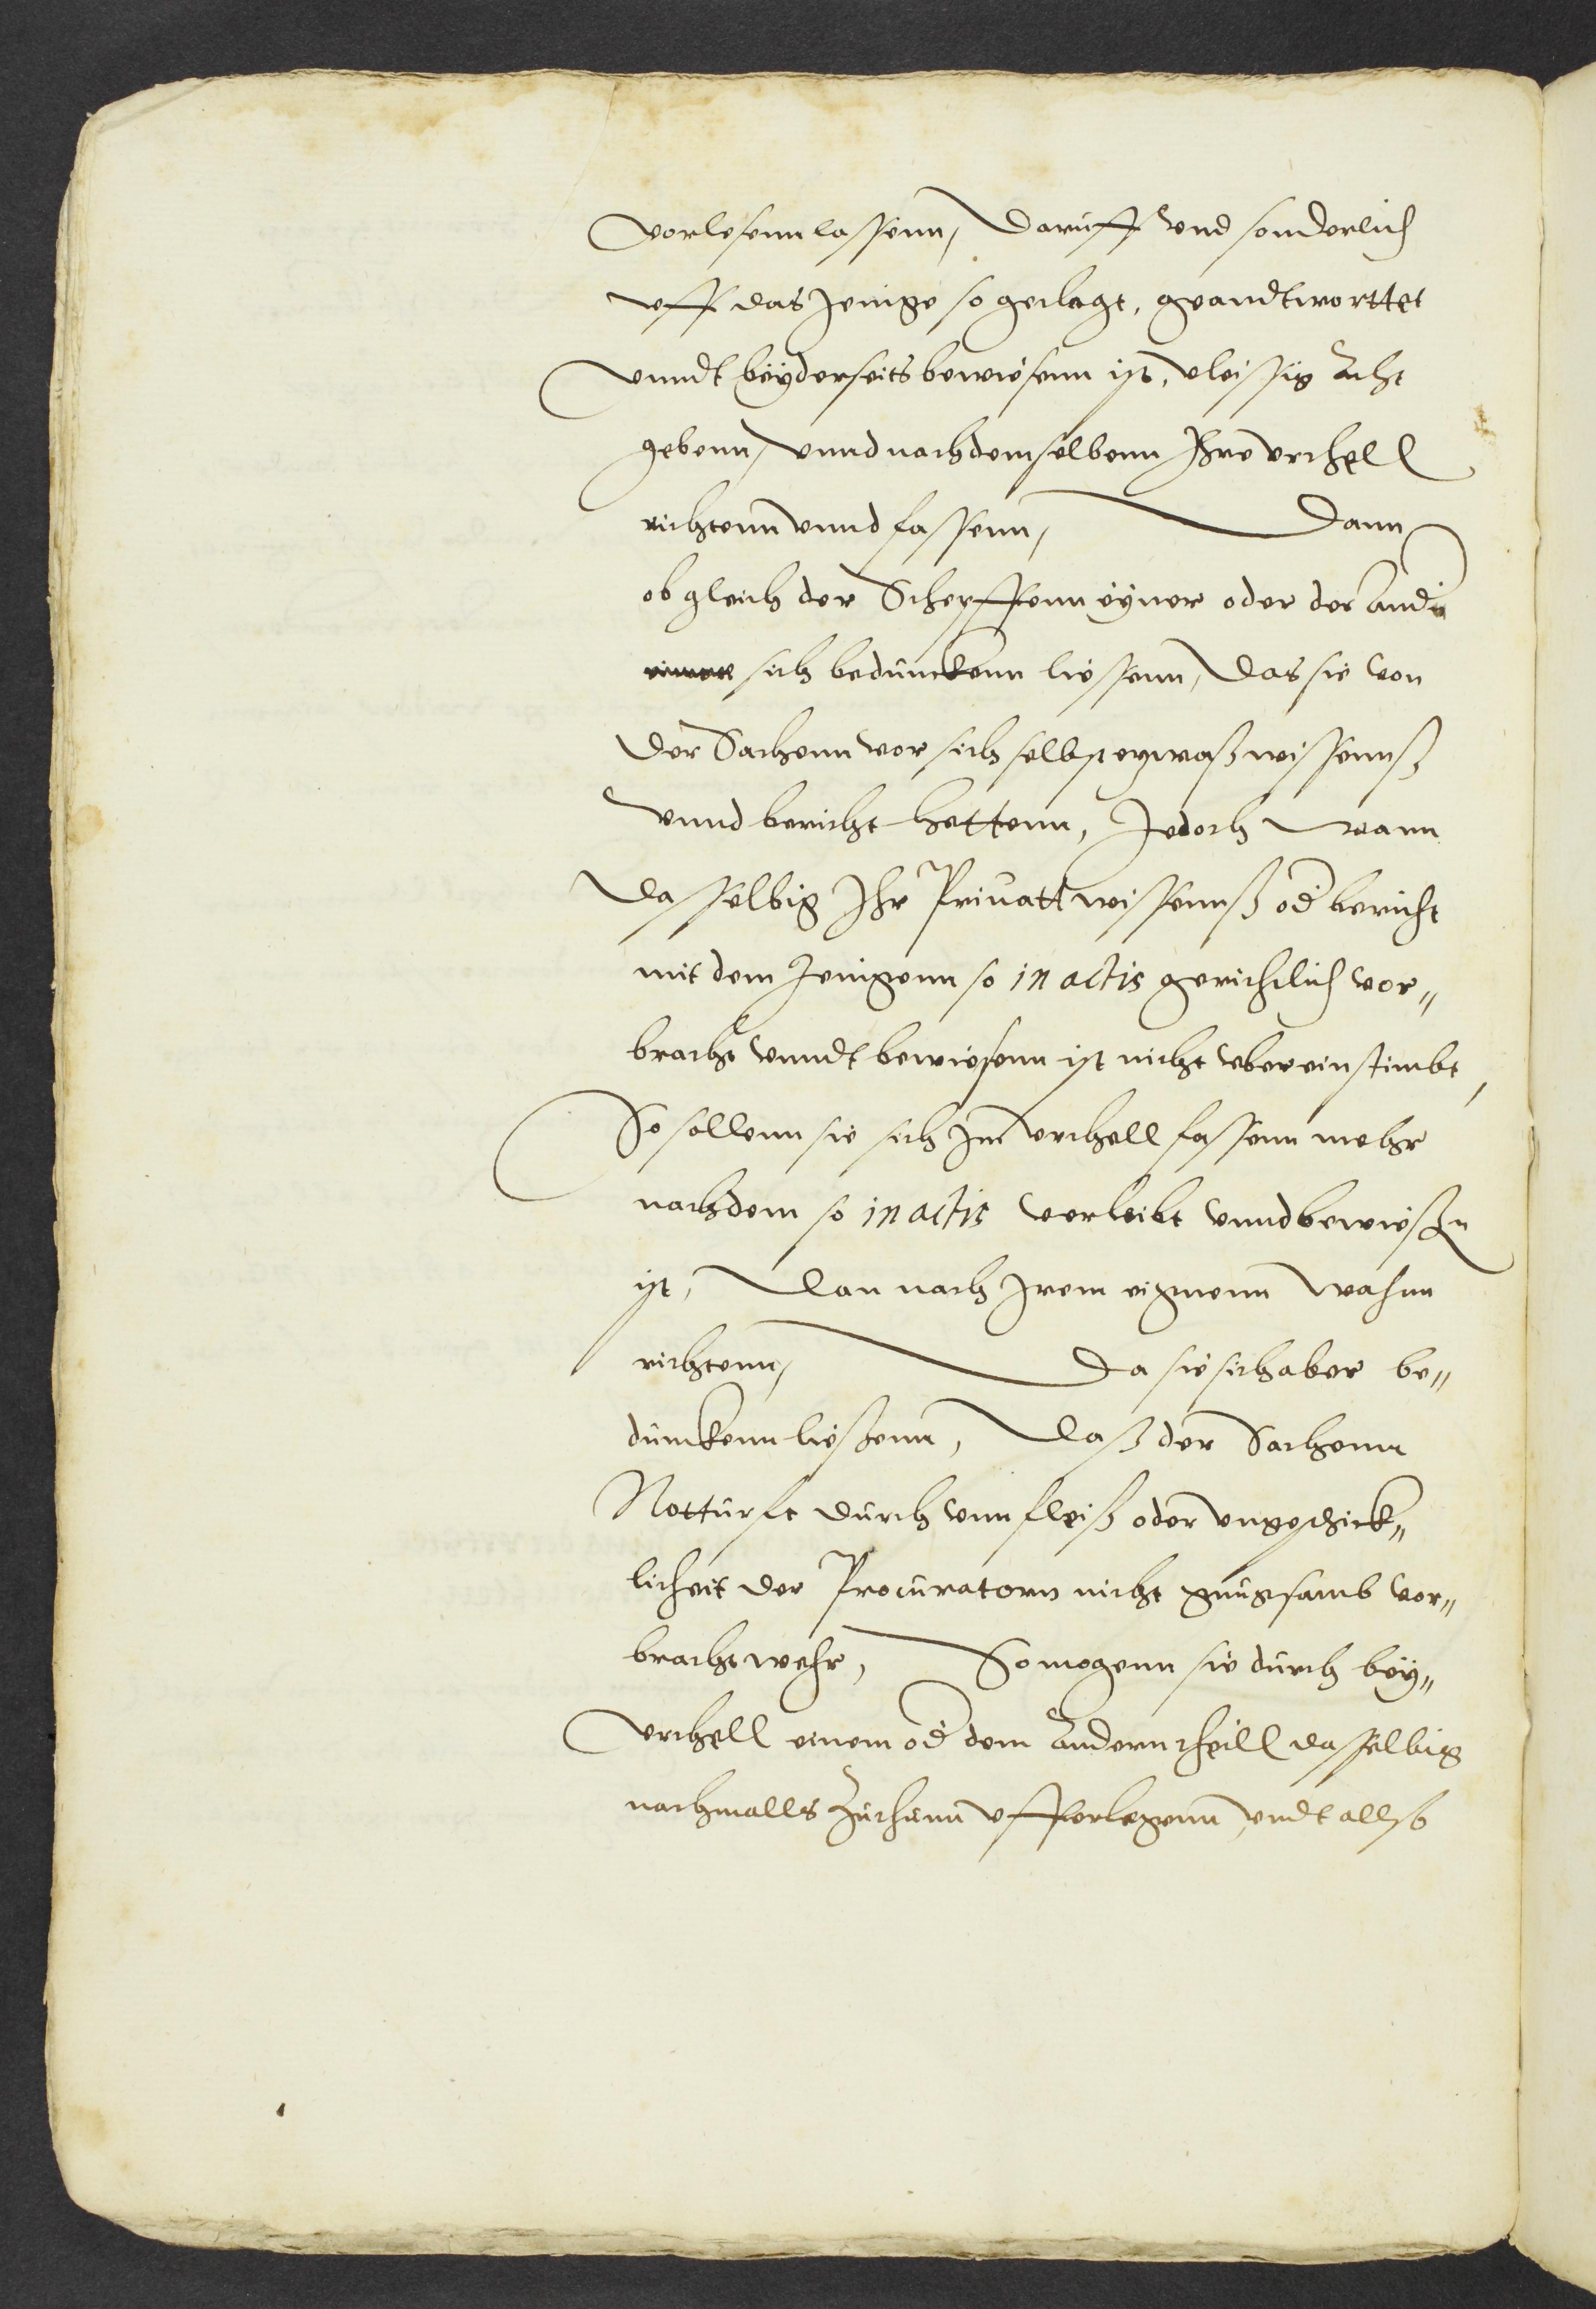 vorlesenn lassenn, Daruff vnd sonderlich
vff das Jenige so geclagt, geandtworttet
vnndt beÿderseits bewiesenn ist, vleissig Acht
gebenn, vnnd nach demselbenn Ihre vrthell
richtenn vnnd fassenn, Dann
ob gleich der Scheffenn eÿner oder der Ander
sich beduncken̄n liessenn, Das sie von
der Sachenn vor sich selbst etzwaß wissennß
vnnd bericht hettenn, Jedoch wann
dasselbig Ihr Priuatt wissennß od bericht
mit dem Jenigenn so in actis gerichtlich vor„
bracht vnndt bewiesenn ist nicht vbereinstimbt,
So sollenn sie sich Im vrthell fassenn mehr
nach dem so in actis verleibt vnnd bewießen
ist, Dan nach Irem eignenn wahnn
richtenn, Da sie sich aber be„
dunckenn ließenn, Daß der Sachenn
Notturft durch vnnfleiß oder vngeschick„
licheit der Procuratorn nicht gnugsamb vor„
bracht wehr, So mogenn sie durch beÿ„
vrthell einem od dem Andern theill dasselbig
nachmalls Zuthunn vfferlegenn, vndt allso